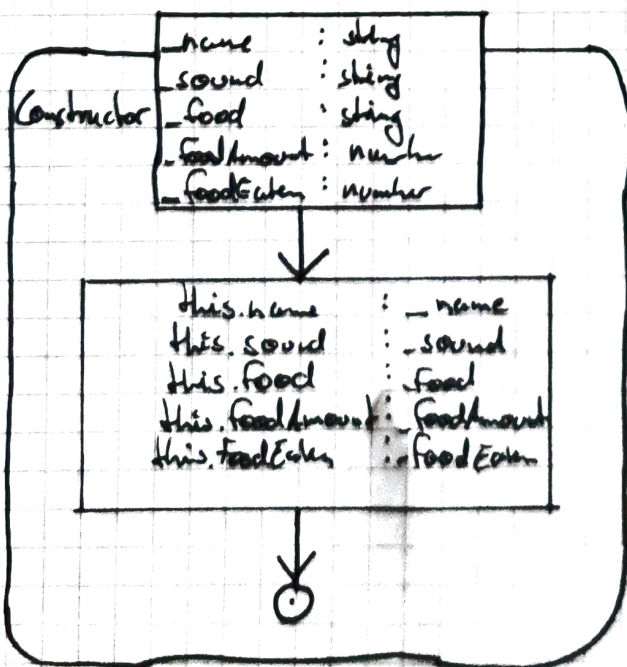 _name : string
_sound : string
Constructor _food : string
_foodAmount : number
_foodEaten : number
this.name : _name
this.sound : _sound
this.food : _food
this.foodAmount : _foodAmount
this.foodEaten : _foodEaten